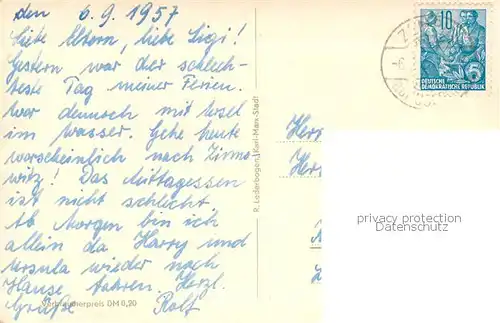 den 6.9.1957
Liebe Eltern, liebe Sigi!
Gestern war der schlech-
teste Tag meiner Ferien.
War dennoch mit Insel
im Wasser. Gehe heute
warscheinlich nach Zinno-
witz! Das Mittagessen
ist nicht schlecht
Ab Morgen bin ich
allein da Harry und
Ursula wieder nach
Hause fahren. Herzl.
Grüße Rolf
Verbraucherpreis DM 0,20
R. Lederbogen, Karl-Marx-Stadt
10
DEUTSCHE
DEMOKRATISCHE REPUBLIK
privacy protection